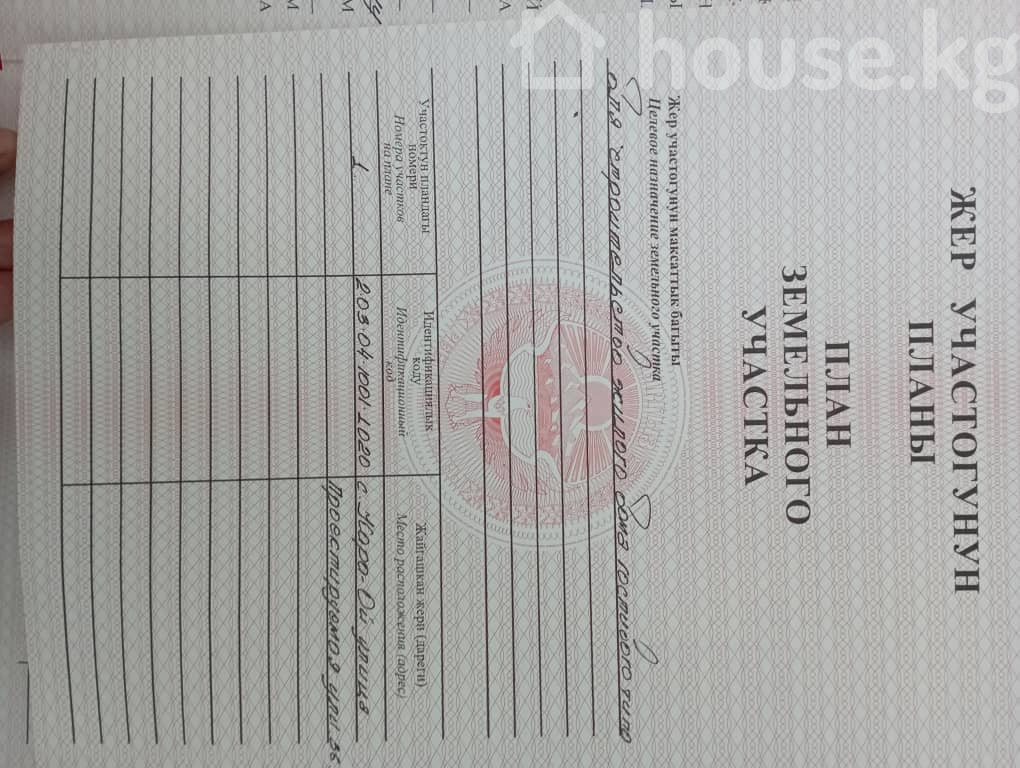 house.kg
ЖЕР УЧАСТОГУНУН
ПЛАНЫ
ПЛАН
ЗЕМЕЛЬНОГО
УЧАСТКА
Жер участогунун максаттык багыты
Целевое назначение земельного участка
для строительство жилого дома гостиного типо
Участоктун пландагы
номери
Номера участков
на плане
Идентификациялык
коду
Идентификационный
код
Жайгашкан жери (дареги)
Место расположения (адрес)
1
2.03.04.1001.1020
с. Кара-Ой улица
Проектируемая